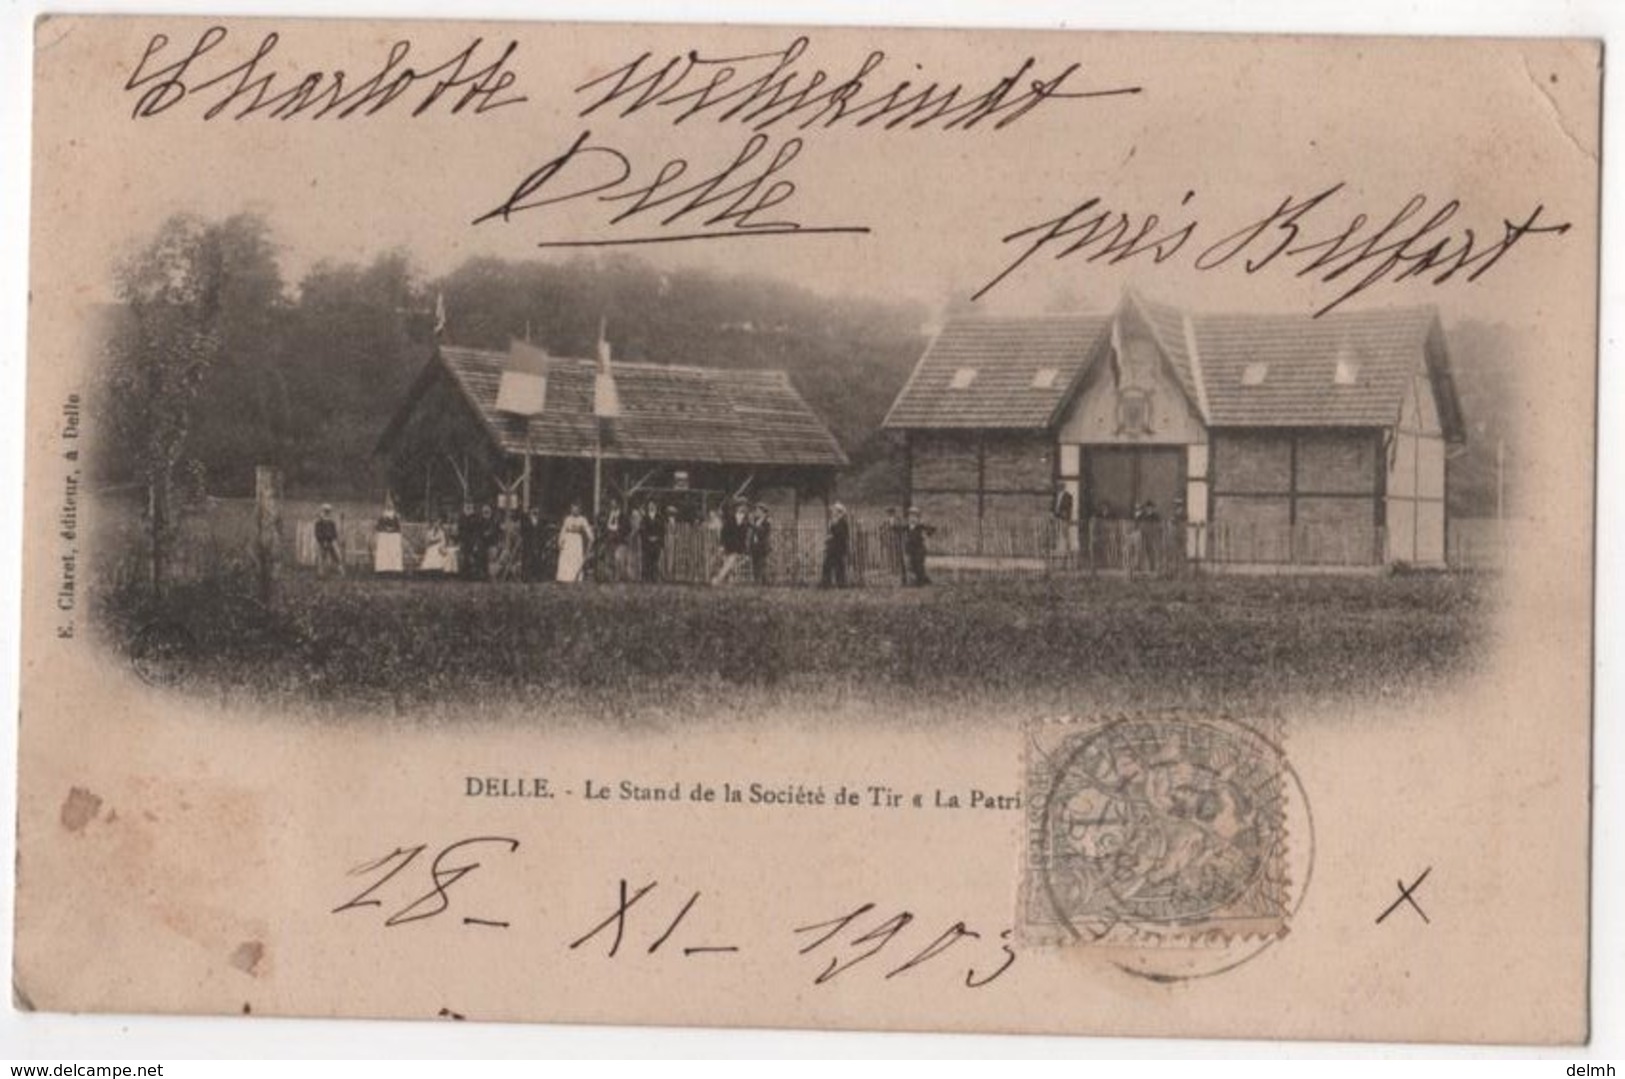 Charlotte Wehekindt
Delle
près Belfort
E. Claret, éditeur, à Delle
DELLE. - Le Stand de la Société de Tir « La Patri
28 - XI - 1903
X
www.delcampe.net
delmh